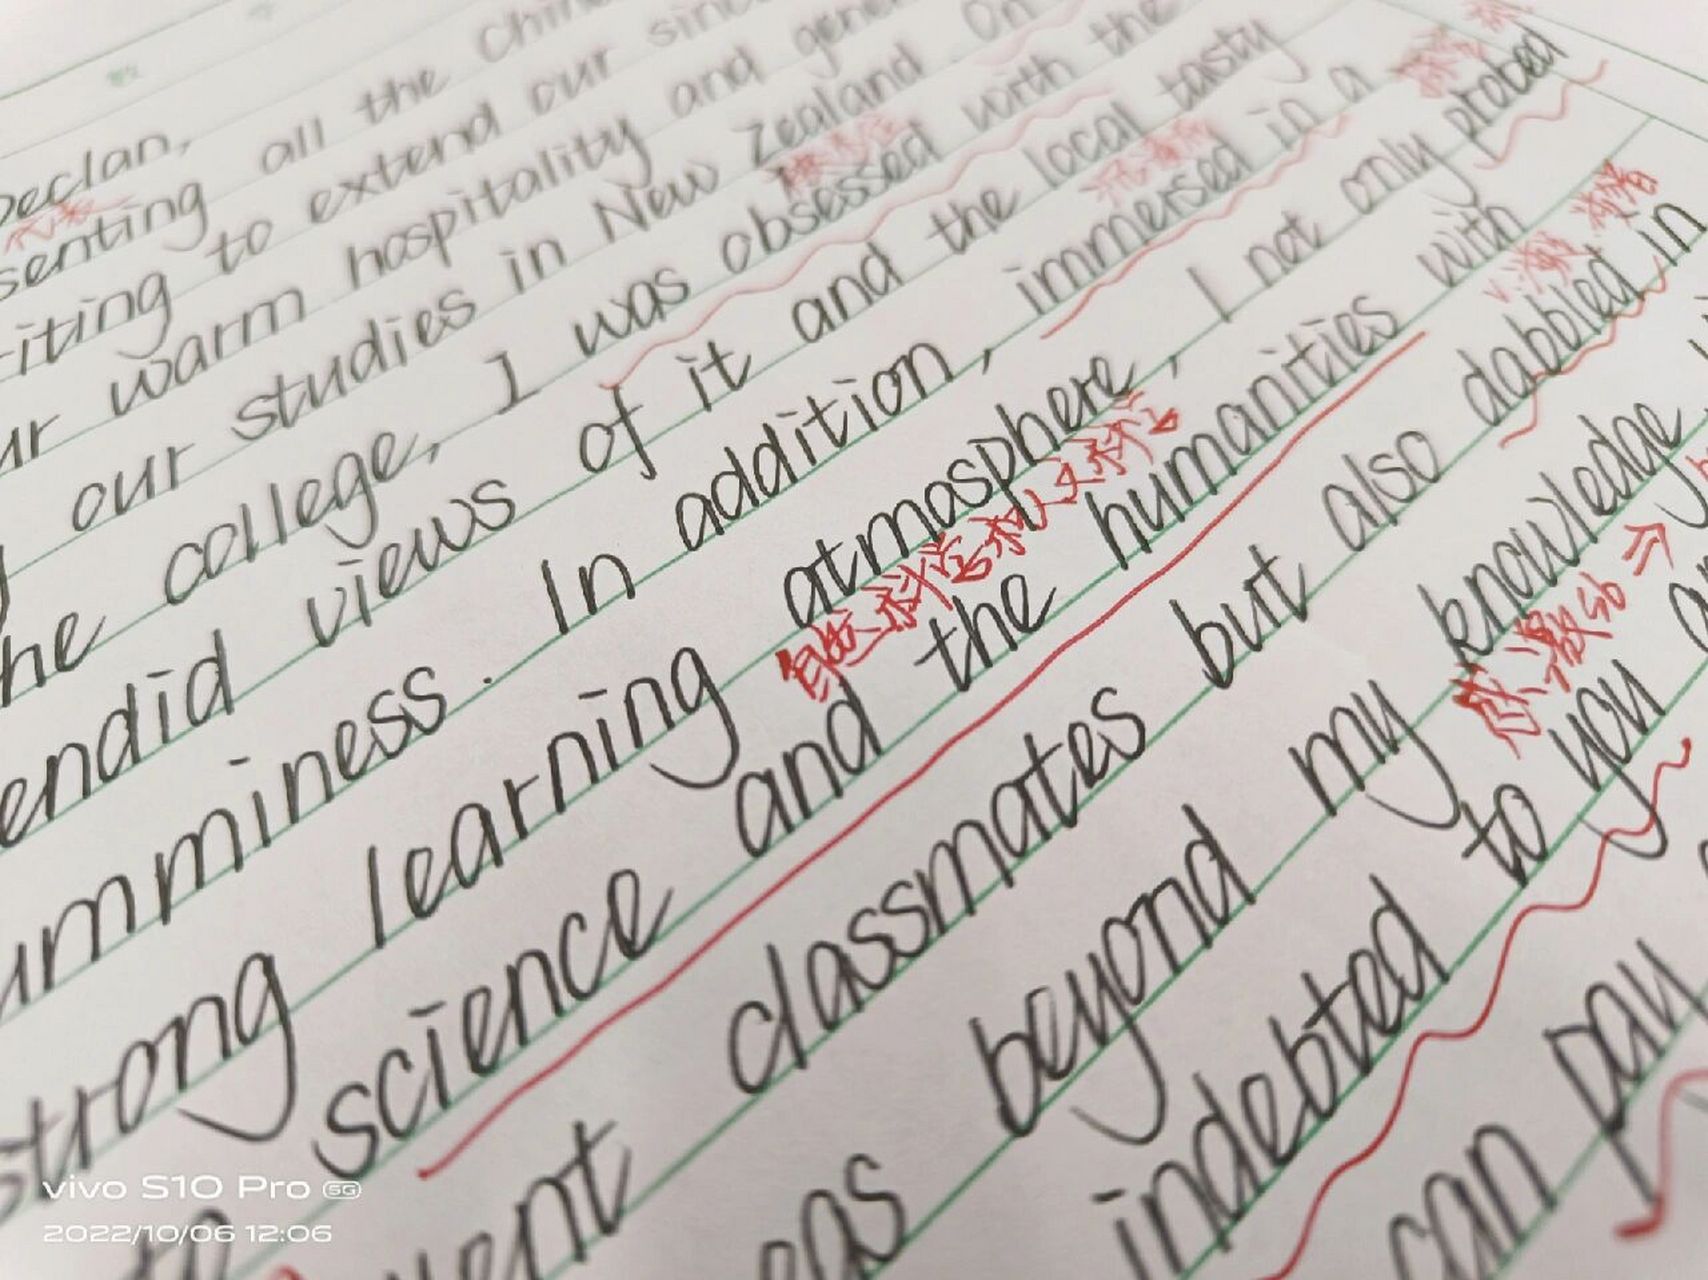 Declan,
代表
senting all the Chine
riting to extend our since
ur warm hospitality and gener
our studies in New Zealand. On
he college, I was obsessed with the
endid views of it and the local tasty
沉浸在
umminess. In addition, immersed in a
strong learning atmosphere, I not only probed
自然科学和人文科学
science and the humanities with
v.涉猎
classmates but also dabbled in
ent
eas beyond my knowledge
感激
indebted to you
can pay
vivo S10 Pro 5G
2022/10/06 12:06